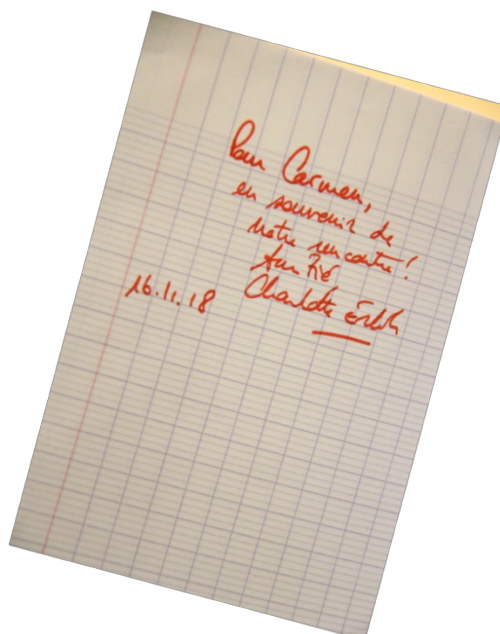 Pour Carmen,
en souvenir de
notre rencontre !
Amitié
16.11.18 Charlotte Erlih